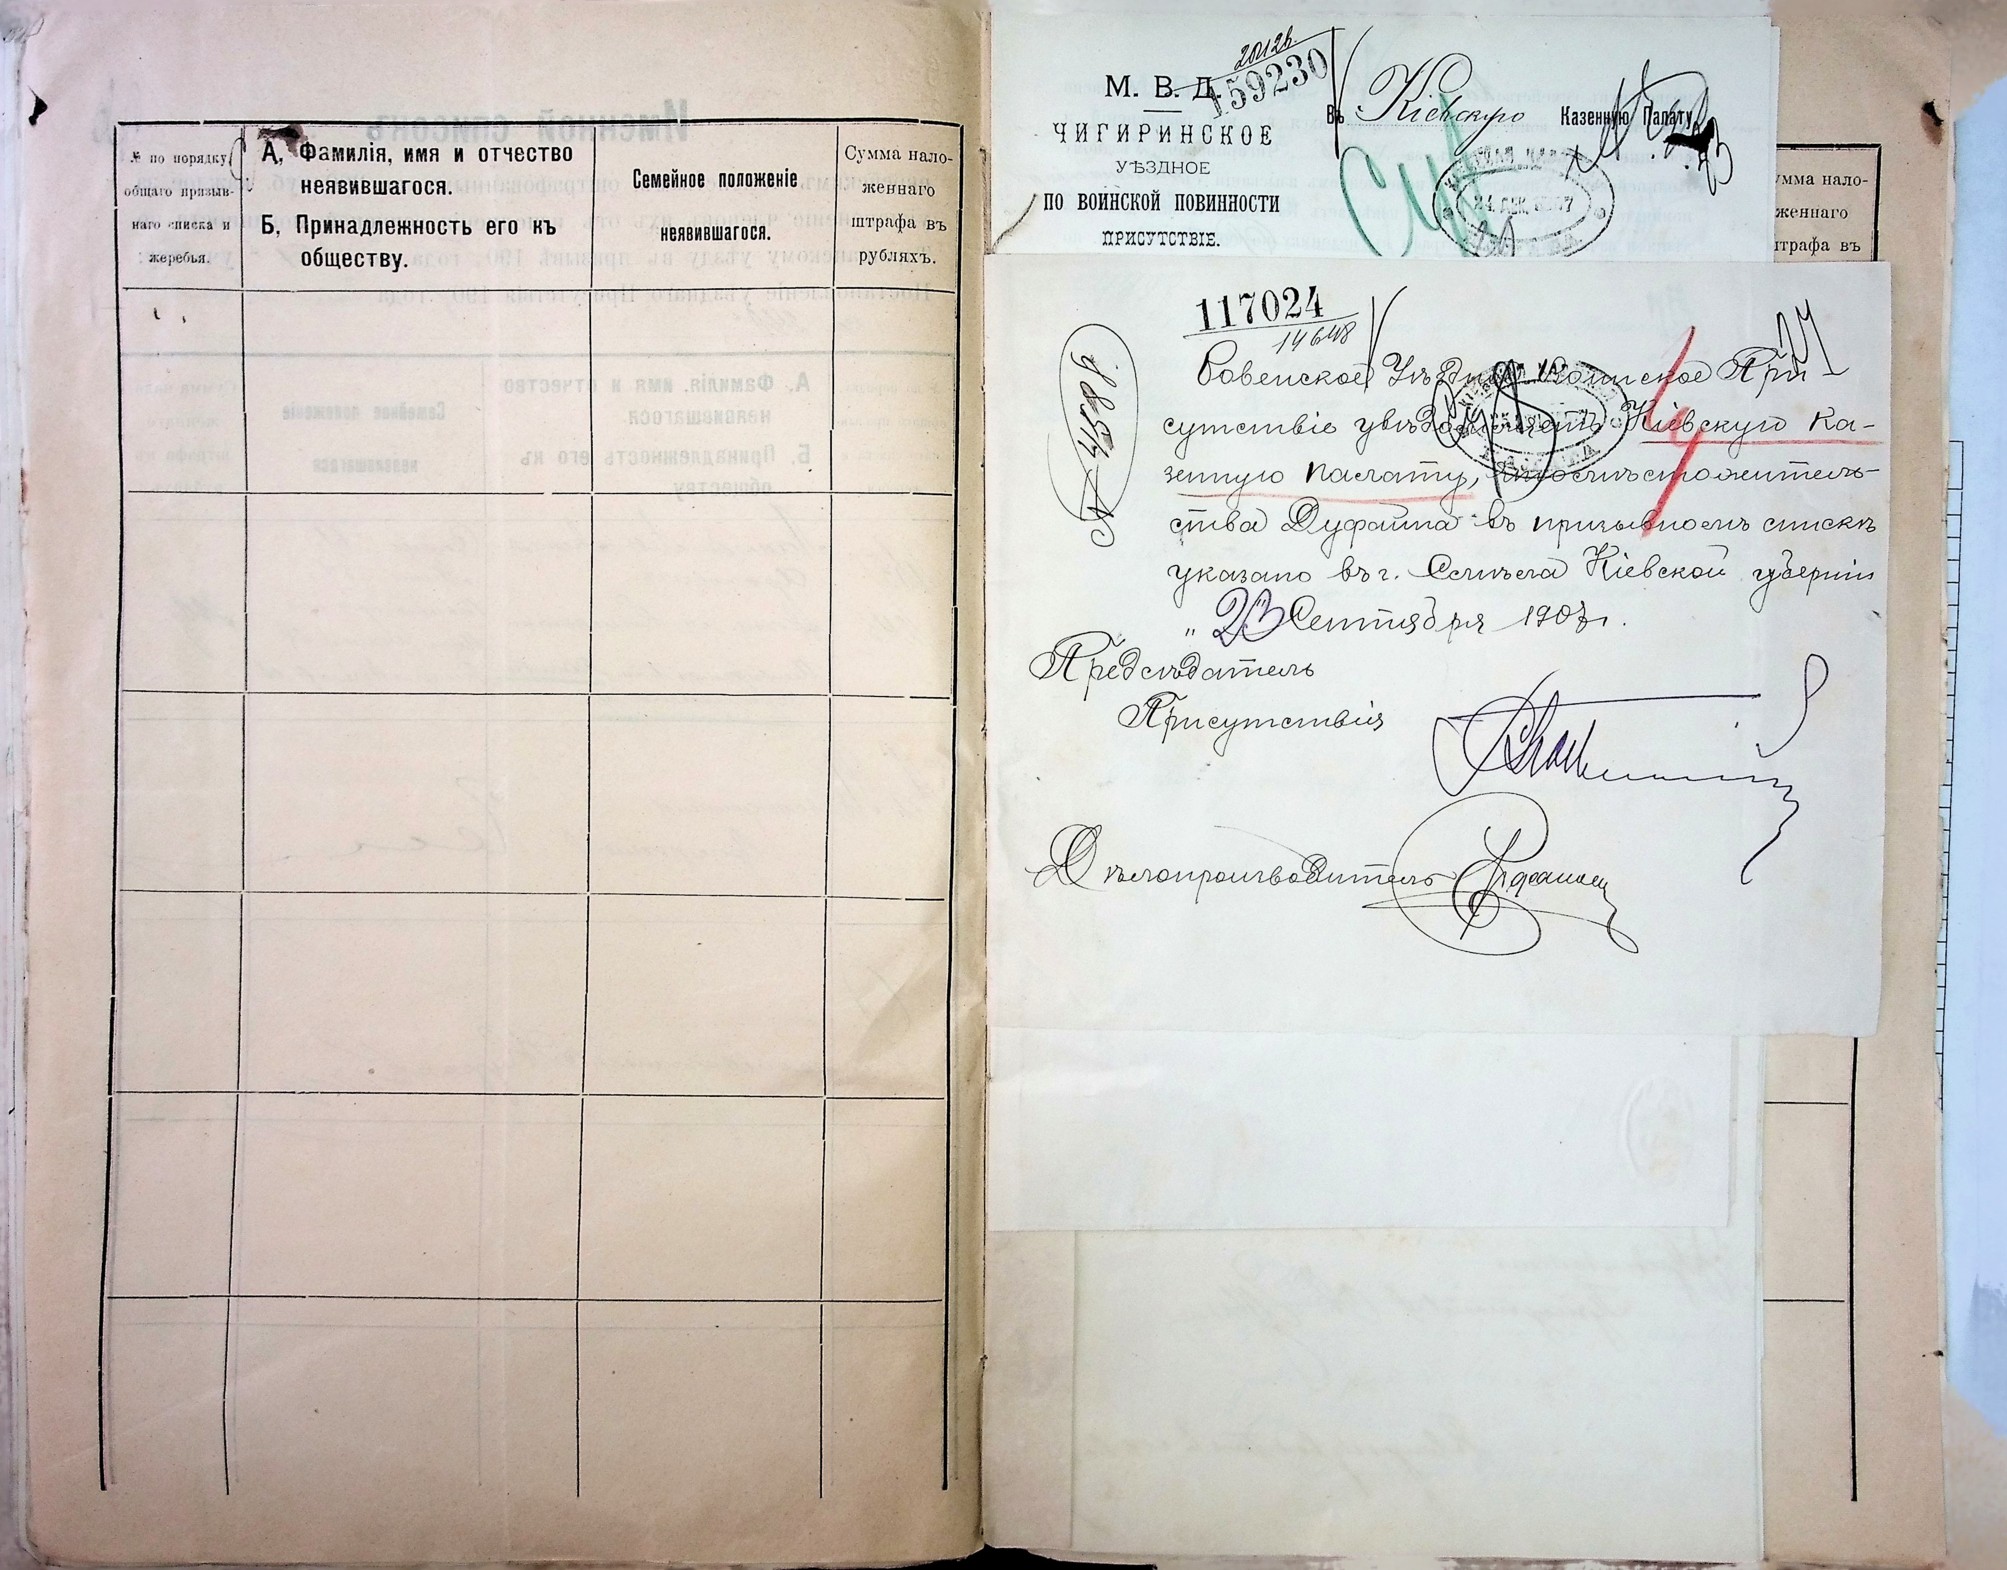 № по порядку
общаго призыв-
наго списка и
жеребья.
А, Фамилія, имя и отчество
неявившагося.
Б, Принадлежность его къ
обществу.
Семейное положеніе
неявившагося.
Сумма нало-
женнаго
штрафа въ
рубляхъ.
М. В. Д.
159230
ЧИГИРИНСКОЕ
УѢЗДНОЕ
ПО ВОИНСКОЙ ПОВИННОСТИ
ПРИСУТСТВІЕ.
Въ Кіевскую Казенную Палату
24 ДЕК.
умма нало-
женнаго
трафа въ
117024
14648
Ровенское Уѣздное Воинское При
сутствіе увѣдомляетъ Кіевскую Ка-
зенную Палату, что мѣстожитель-
ства Дуфайта въ призывномъ спискѣ
указано въ г. Кіевской губерніи
„23 Сентября 1907 г.
Предсѣдатель
Присутствія
Дѣлопроизводитель